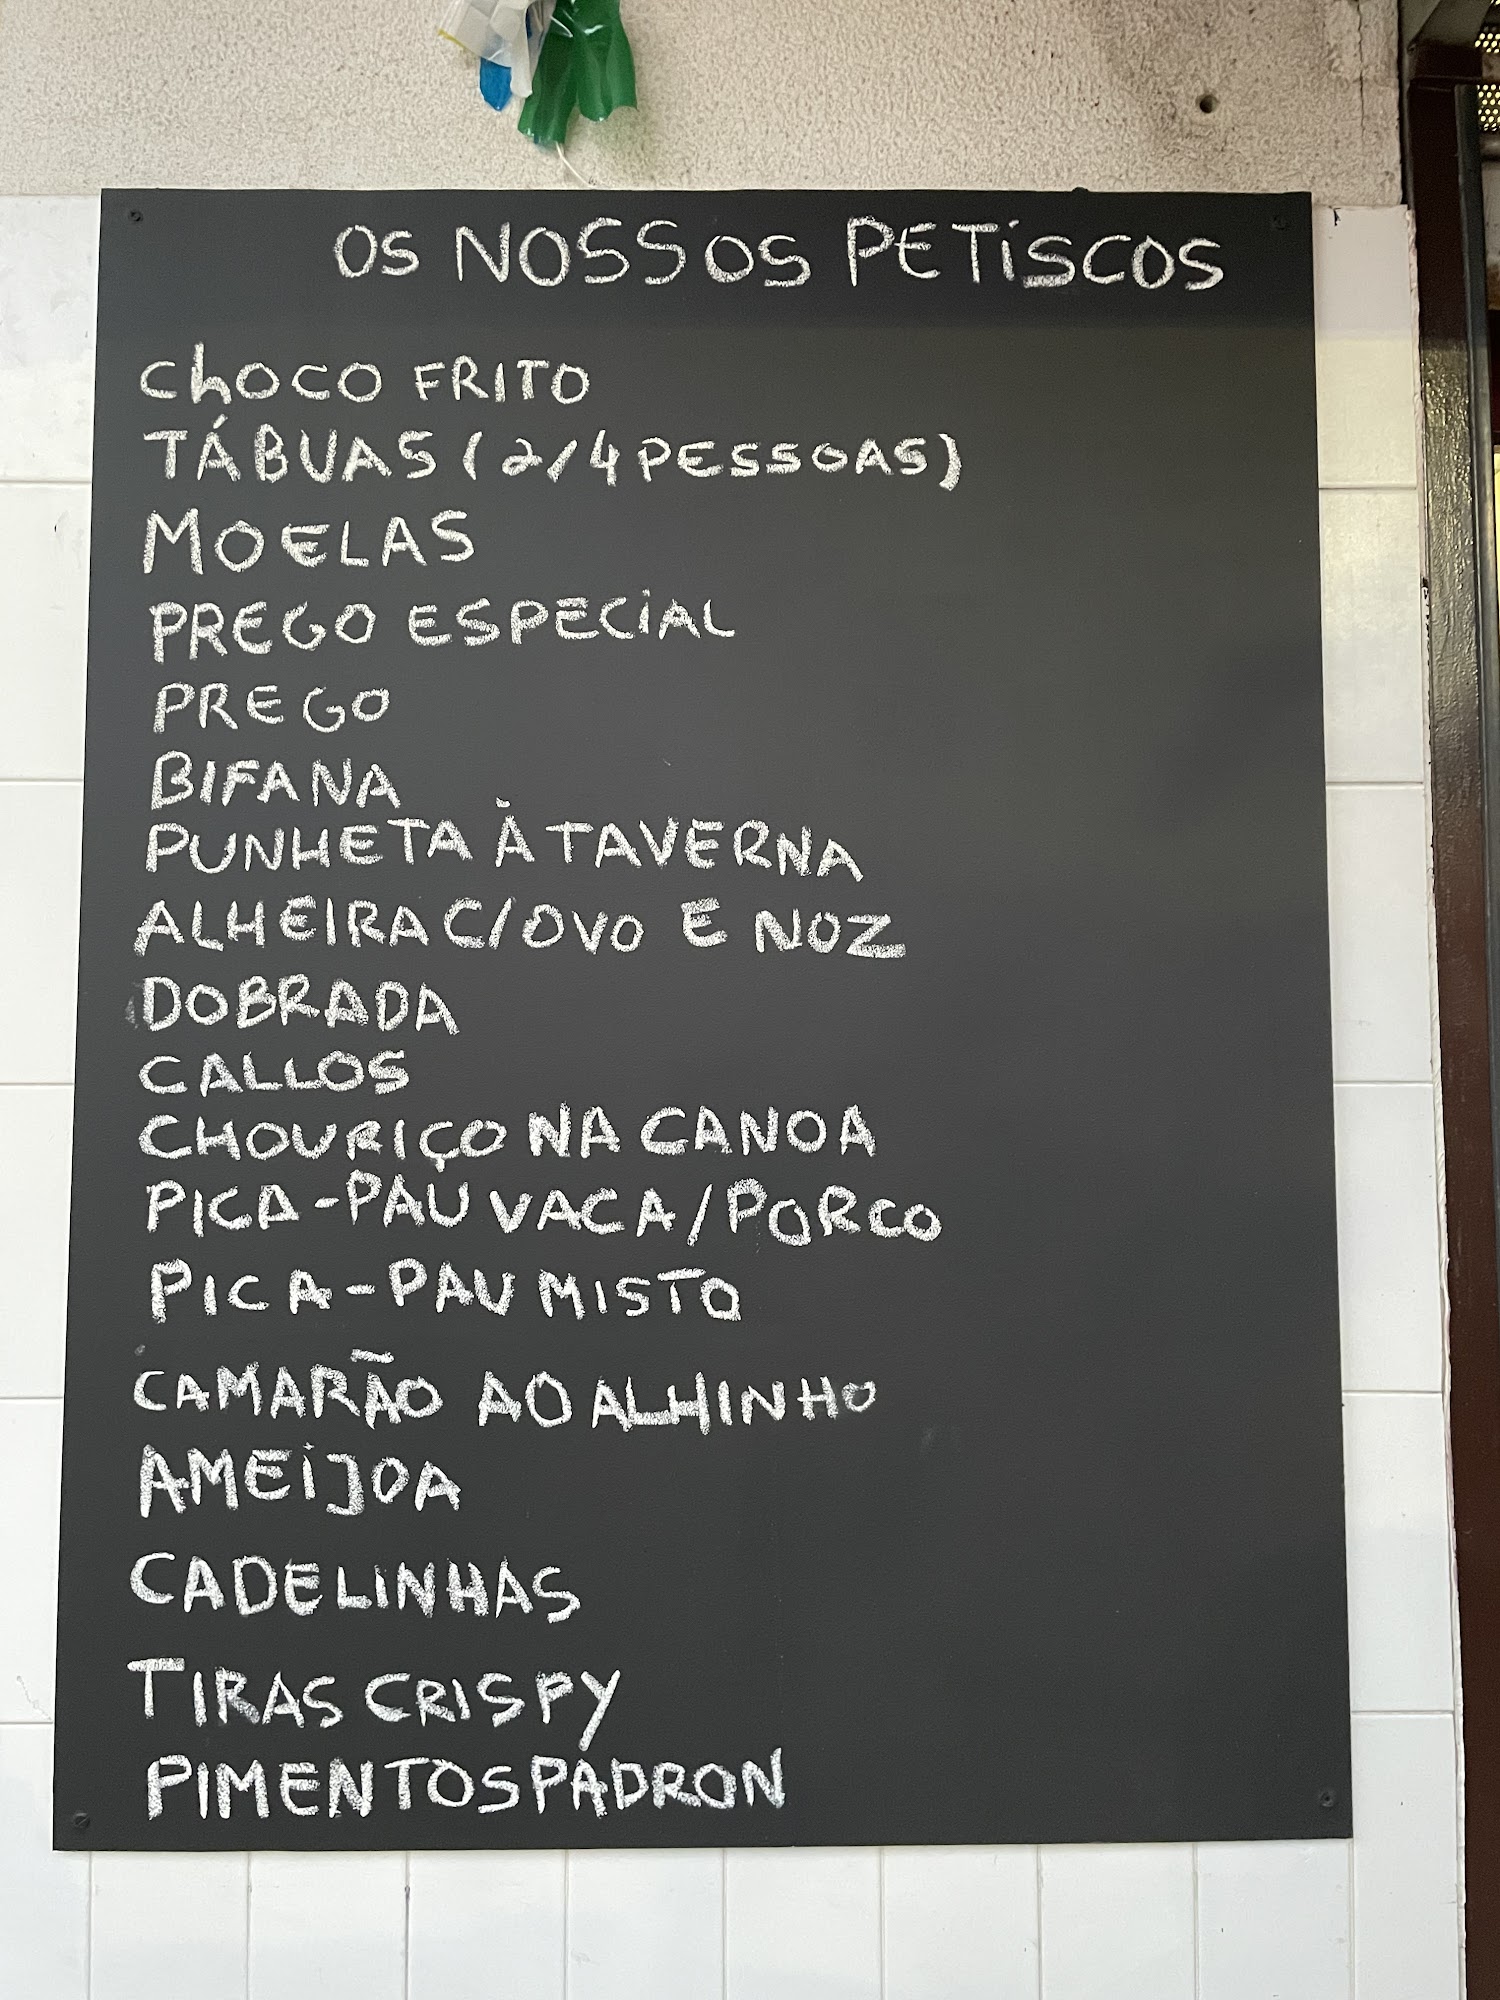 OS NOSSOS PETISCOS
CHOCO FRITO
TÁBUAS (2/4 PESSOAS)
MOELAS
PREGO ESPECIAL
PREGO
BIFANA
PUNHETA À TAVERNA
ALHEIRA C/OVO E NOZ
DOBRADA
CALLOS
CHOURIÇO NA CANOA
PICA-PAU VACA/PORCO
PICA-PAU MISTO
CAMARÃO AO ALHINHO
AMEIJOA
CADELINHAS
TIRAS CRISPY
PIMENTOS PADRON